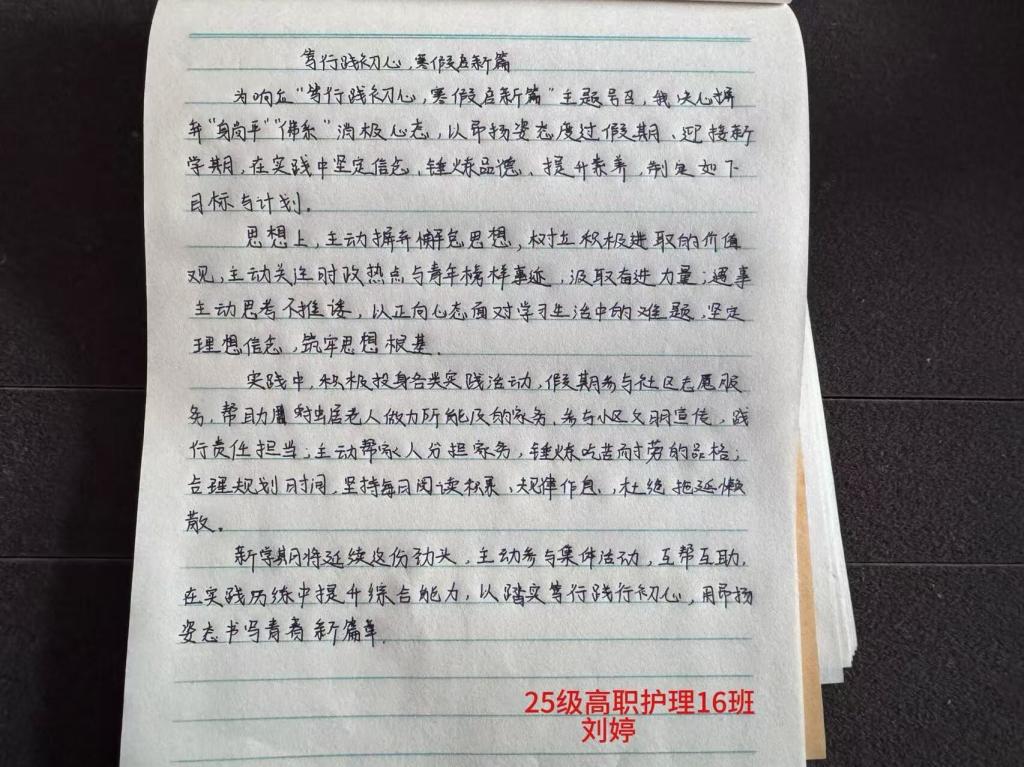 笃行践初心,寒假启新篇
为响应“笃行践初心,寒假启新篇”主题号召,我决心摒
弃“躺平”“佛系”消极心态,以昂扬姿态度过假期、迎接新
学期,在实践中坚定信念、锤炼品德、提升素养,制定如下
目标与计划。
思想上,主动摒弃懈怠思想,树立积极进取的价值
观,主动关注时政热点与青年榜样事迹,汲取奋进力量;遇事
主动思考不推诿,以正向心态面对学习生活中的难题,坚定
理想信念,筑牢思想根基。
实践中,积极投身各类实践活动,假期参与社区志愿服
务,帮助独居老人做力所能及的家务,参与小区文明宣传,践
行责任担当;主动帮家人分担家务,锤炼吃苦耐劳的品格;
合理规划时间,坚持每日阅读积累、规律作息,杜绝拖延懒
散。
新学期将延续这份劲头,主动参与集体活动,互帮互助,
在实践历练中提升综合能力,以踏实笃行践行初心,用昂扬
姿态书写青春新篇章。
25级高职护理16班
刘婷